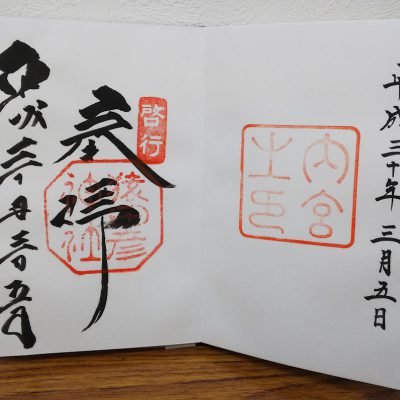 平成三十年三月五日
内宮
之印
啓行
奉拝
猿田彦
神社
平成三十年三月五日